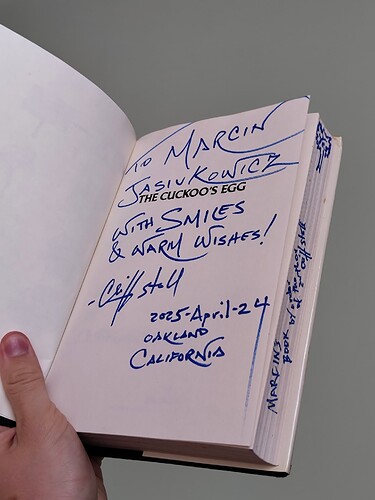 To Marcin
Jasiukowicz
THE CUCKOO'S EGG
With Smiles
& warm wishes!
-Cliff Stoll
2025-April-24
Oakland
California
Marcin's
Book
Cliff Stoll